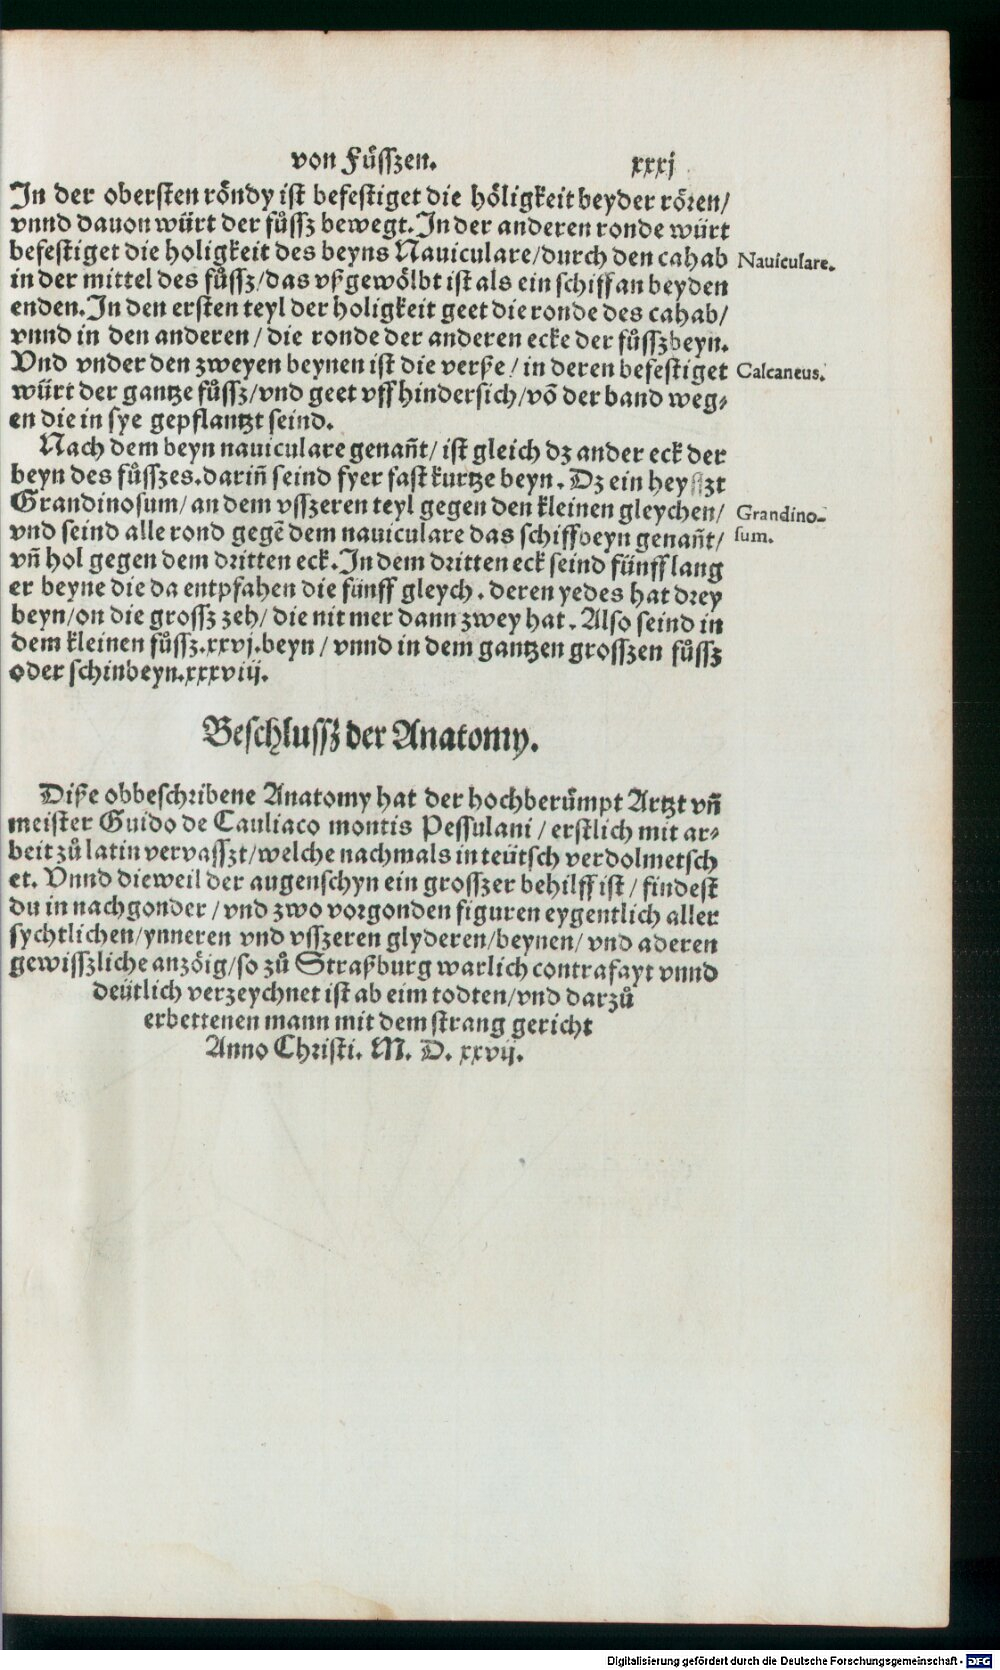 von Fuͤſſzen.
xxxj
In der oberſten roͤndy iſt befeſtiget die hoͤligkeit beyder roͤren/
vnnd dauon würt der fuͦſſz bewegt. In der anderen ronde würt
befeſtiget die holigkeit des beyns Nauiculare/durch den cahab
Nauiculare.
in der mittel des fuͦſſz/das vßgewoͤlbt iſt als ein ſchiff an beyden
enden. In den erſten teyl der holigkeit geet die ronde des cahab/
vnnd in den anderen/ die ronde der anderen ecke der fuͦſſzbeyn.
Vnd vnder den zweyen beynen iſt die verße/ in deren befeſtiget
Calcaneus.
würt der gantze fuͦſſz/vnd geet vff hinderſich/võ der band weg⸗
en die in ſye gepflantzt ſeind.
Nach dem beyn nauiculare genañt/ iſt gleich dz ander eck der
beyn des fuͦſſzes. dariñ ſeind fyer faſt kurtze beyn. Dz ein heyſſzt
Grandinoſum/ an dem vſſzeren teyl gegen den kleinen gleychen/
Grandino-
ſum.
vnd ſeind alle rond gegẽ dem nauiculare das ſchiffbeyn genañt/
vñ hol gegen dem dritten eck. In dem dritten eck ſeind fünff lang
er beyne die da entpfahen die fünff gleych. deren yedes hat drey
beyn/on die groſſz zeh/ die nit mer dann zwey hat. Alſo ſeind in
dem kleinen fuͦſſz.xxvj.beyn/ vnnd in dem gantzen groſſzen fuͦſſz
oder ſchinbeyn.xxxviij.
Beſchluſſz der Anatomy.
Diße obbeſchribene Anatomy hat der hochberuͤmpt Artzt vñ
meiſter Guido de Cauliaco montis Peſſulani/ erſtlich mit ar⸗
beit zuͦ latin vervaſſzt/welche nachmals in teütſch verdolmetſch
et. Vnnd dieweil der augenſchyn ein groſſzer behilff iſt/ findeſt
du in nachgonder/ vnd zwo vorgonden figuren eygentlich aller
ſychtlichen/ynneren vnd vſſzeren glyderen/beynen/ vnd aderen
gewiſſzliche anzoͤig/ſo zuͦ Straßburg warlich contrafayt vnnd
deütlich verzeychnet iſt ab eim todten/vnd darzuͦ
erbettenen mann mit dem ſtrang gericht
Anno Chriſti. M. D. xxvij.
Digitalisierung gefördert durch die Deutsche Forschungsgemeinschaft - DFG